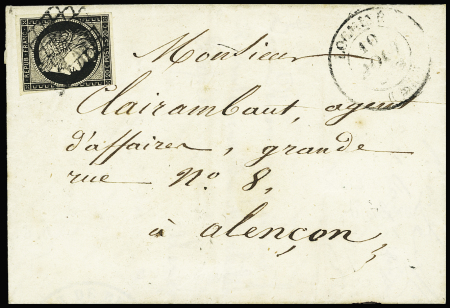 REPUB. FRANC.
Monsieur
Clairambaut, agent
d'affaires, grande
rue N° 8,
à alençon.